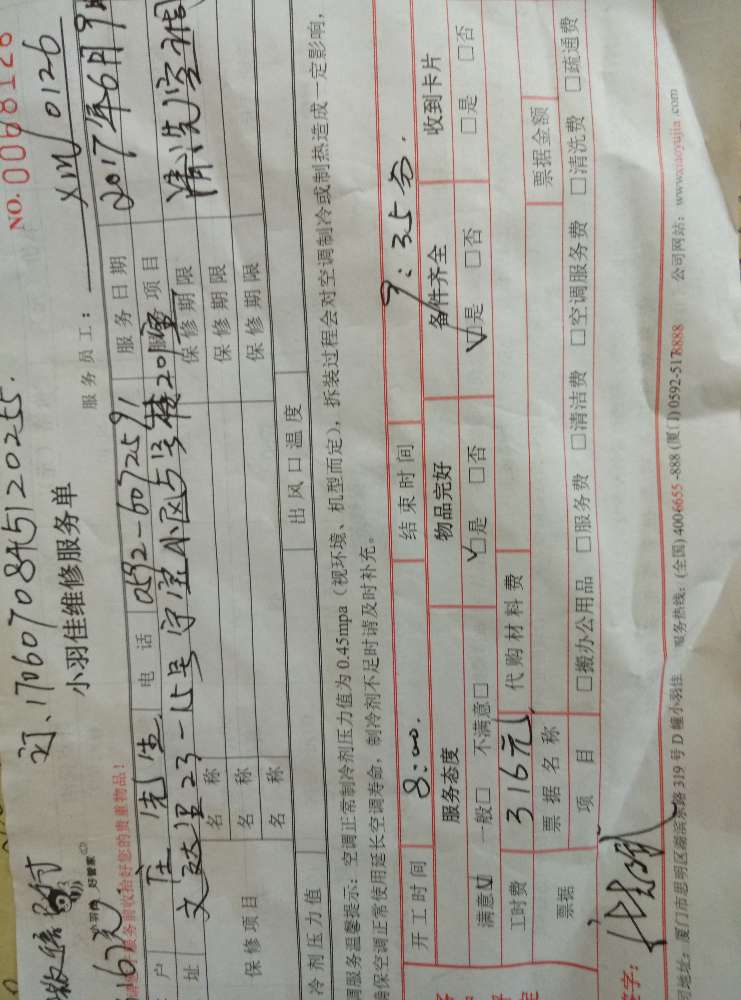 订、1706070845120255.
NO.0068126
小羽佳维修服务单
服务员工: XM0126
好管家
服务前收拾好您的贵重物品!
户 庄先生 电话 0592-6072591 服务日期 2017年6月9
址 23-15号 小区5号楼201室 服务项目 清洗空调
保修项目
名称 保修期限
名称 保修期限
名称 保修期限
冷剂压力值 出风口温度
调服务温馨提示: 空调正常制冷剂压力值为 0.45mpa（视环境、机型而定），拆装过程会对空调制冷或制热造成一定影响,
确保空调正常使用延长空调寿命，制冷剂不足时请及时补充。
开工时间 8:00. 结束时间 9:35分.
服务态度 物品完好 备件齐全 收到卡片
满意☑ 一般□ 不满意□ ☑是 □否 ☑是 □否 □是 □否
工时费 316元 代购材料费
票据 票据名称 票据金额
项目 □搬办公用品 □服务费 □清洁费 □空调服务费 □清洗费 □疏通费
签字:
地址: 厦门市思明区湖滨东路 319 号 D 幢小羽佳 服务热线: (全国) 4006655-888 (厦门) 0592-5178888 公司网站: www.xiaoyujia.com